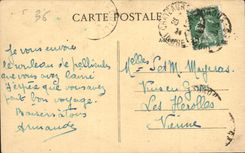 36
CARTE POSTALE
Je vous envoie
le rouleau de pellicules
que vous avez laissé
J'espère que vous avez
fait bon voyage.
Baisers à tous
Armande
Melles S et M Mayras
Les Herolles
Vienne